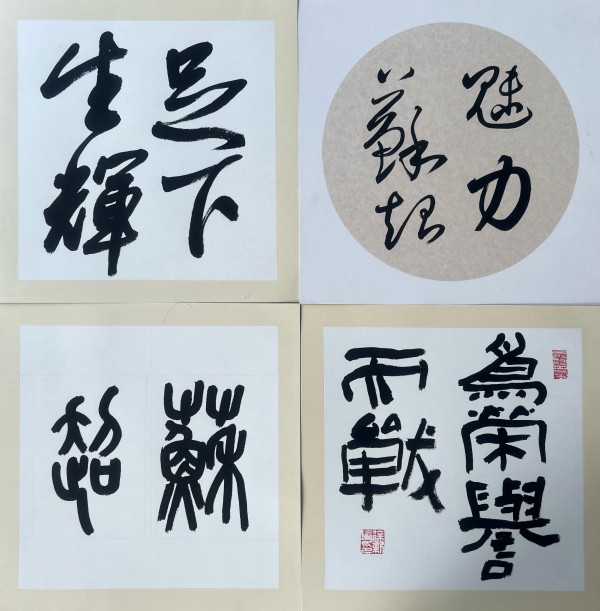 足下
生輝
魅力
蘇超
蘇
超
為榮譽
而戰